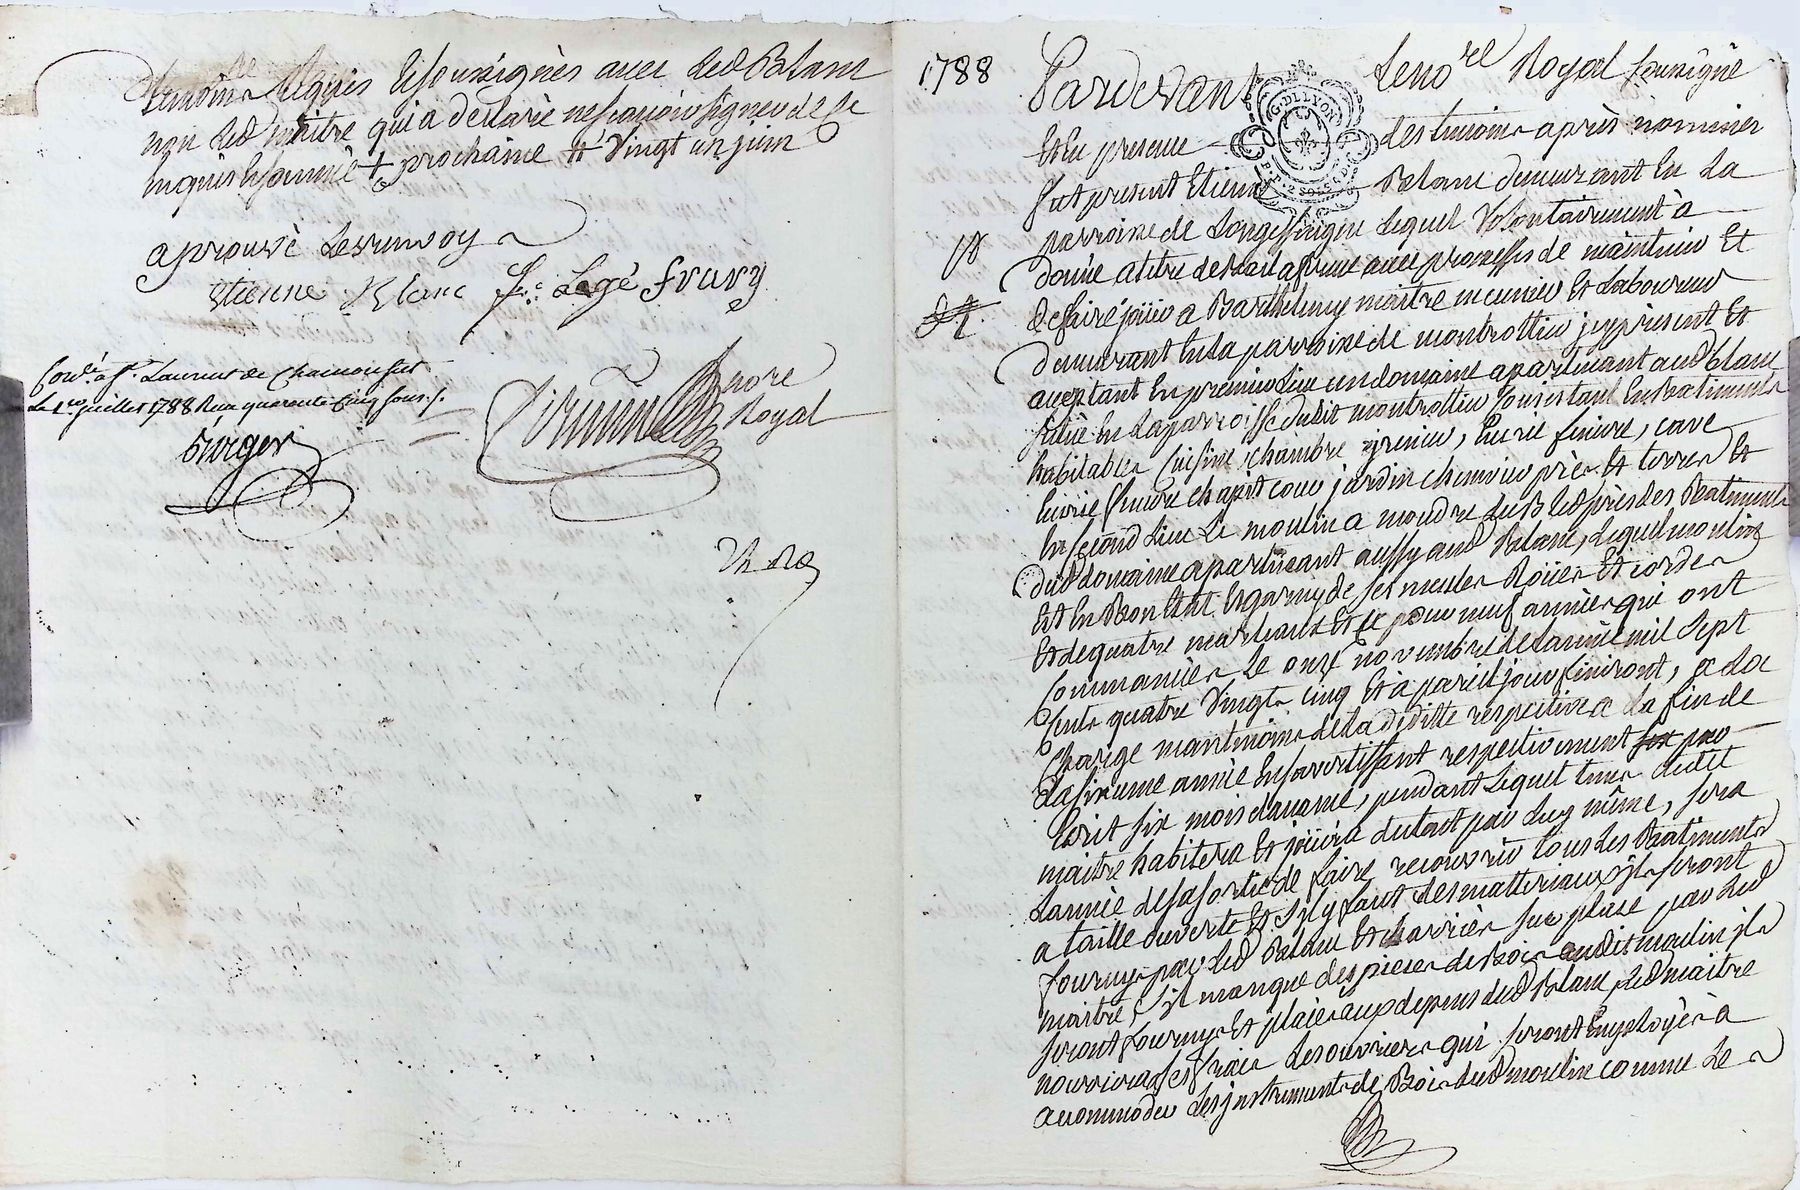 temoins requis et soussignés avec led Blanc
non led maitre qui a declaré ne scavoir signer de ce
enquis et sommé + prochaine # vingt un juin
aprouvé les renvoy
etienne Blanc Legé fvury
Con.lé a S.t Laurent de Chamousset
Le 1er juillet 1788 Reçu quarente cinq sous
Girger
nore
Royal
1788
Pardevant le no.re Royal soussigné
G. D LYON
2 SOLS
et en presence des temoins après nommés
fut present Etienne Blanc demeurant en la
parroisse de Longessaigne lequel volontairement à
donné a titre de bail a ferme avec promesse de maintenir et
de faire jouir a Barthelemy maitre meunier et laboureur
demeurant en la parroisse de montrottier jcy present et
acceptant en premier lieu un domaine apartenant aud blanc
situé en la parroisse dudit montrottier consistant en batiments
habitables cuisine, chambre grenier, Ecurie feniere, cave
Ecurie feniere chapit cour jardin chenevier près et terres et
en second lieu le moulin a moudre les Bled près des Batiments
dud domaine apartenant aussy aud Blanc, lequel moulin
Est en Bon Etat et garny de ses meules Roües et cordes
et de quatre marteaux et ce pour neuf années qui ont
commancées le onze novembre de l'année mil sept
cents quatre vingt cinq et à pareil jour finiront, a la
charge neantmoins de la deditte respective a la fin de
la sixieme année en s'avertissant respectivement par
Ecrit six mois d'avance, pendant lequel tems ledit
maitre habitera et jouira du tout par luy même, sera
l'année de sa sortie de faire recouvrir tous les Batiments
a taille ouverte et s'il y faut des materiaux ils seront
fournys par led Blanc et charriés sur place par led
maitre, s'il manque des pieces de Bois audit moulin ils
seront fournys et placés aux depens dud Blanc led maitre
nourrira a ses frais les ouvriers qui seront Employés à
accommoder les jnstruments de Bois dud moulin comme le